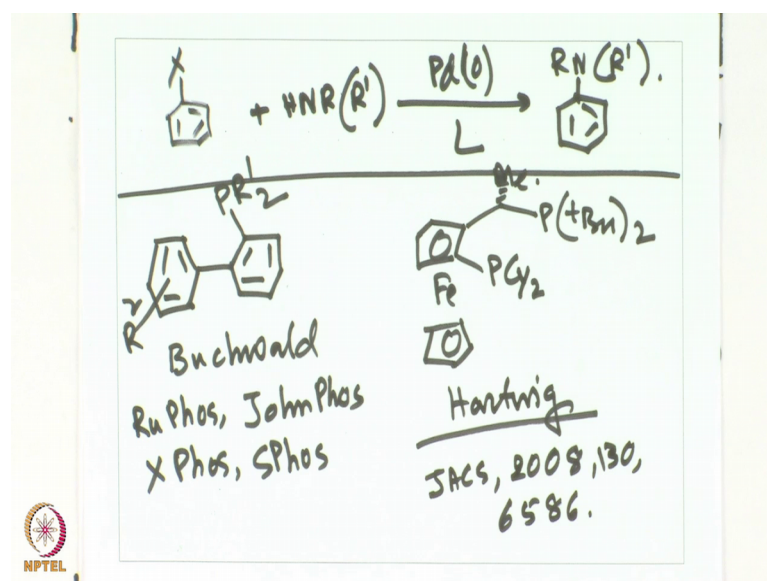 X
+ HNR(R')
Pd(0)
L
RN(R').
PR¹2
R²
Buchwald
RuPhos, JohnPhos
XPhos, SPhos
Me.
P(tBu)2
PCy2
Fe
Hartwig
JACS, 2008, 130,
6586.
NPTEL